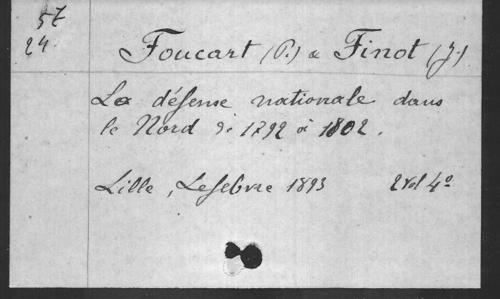 57
24.
Foucart (P.) & Finot (J.)
La défense nationale dans
le Nord de 1792 à 1802.
Lille, Lefebvre 1893 2 vol 4º